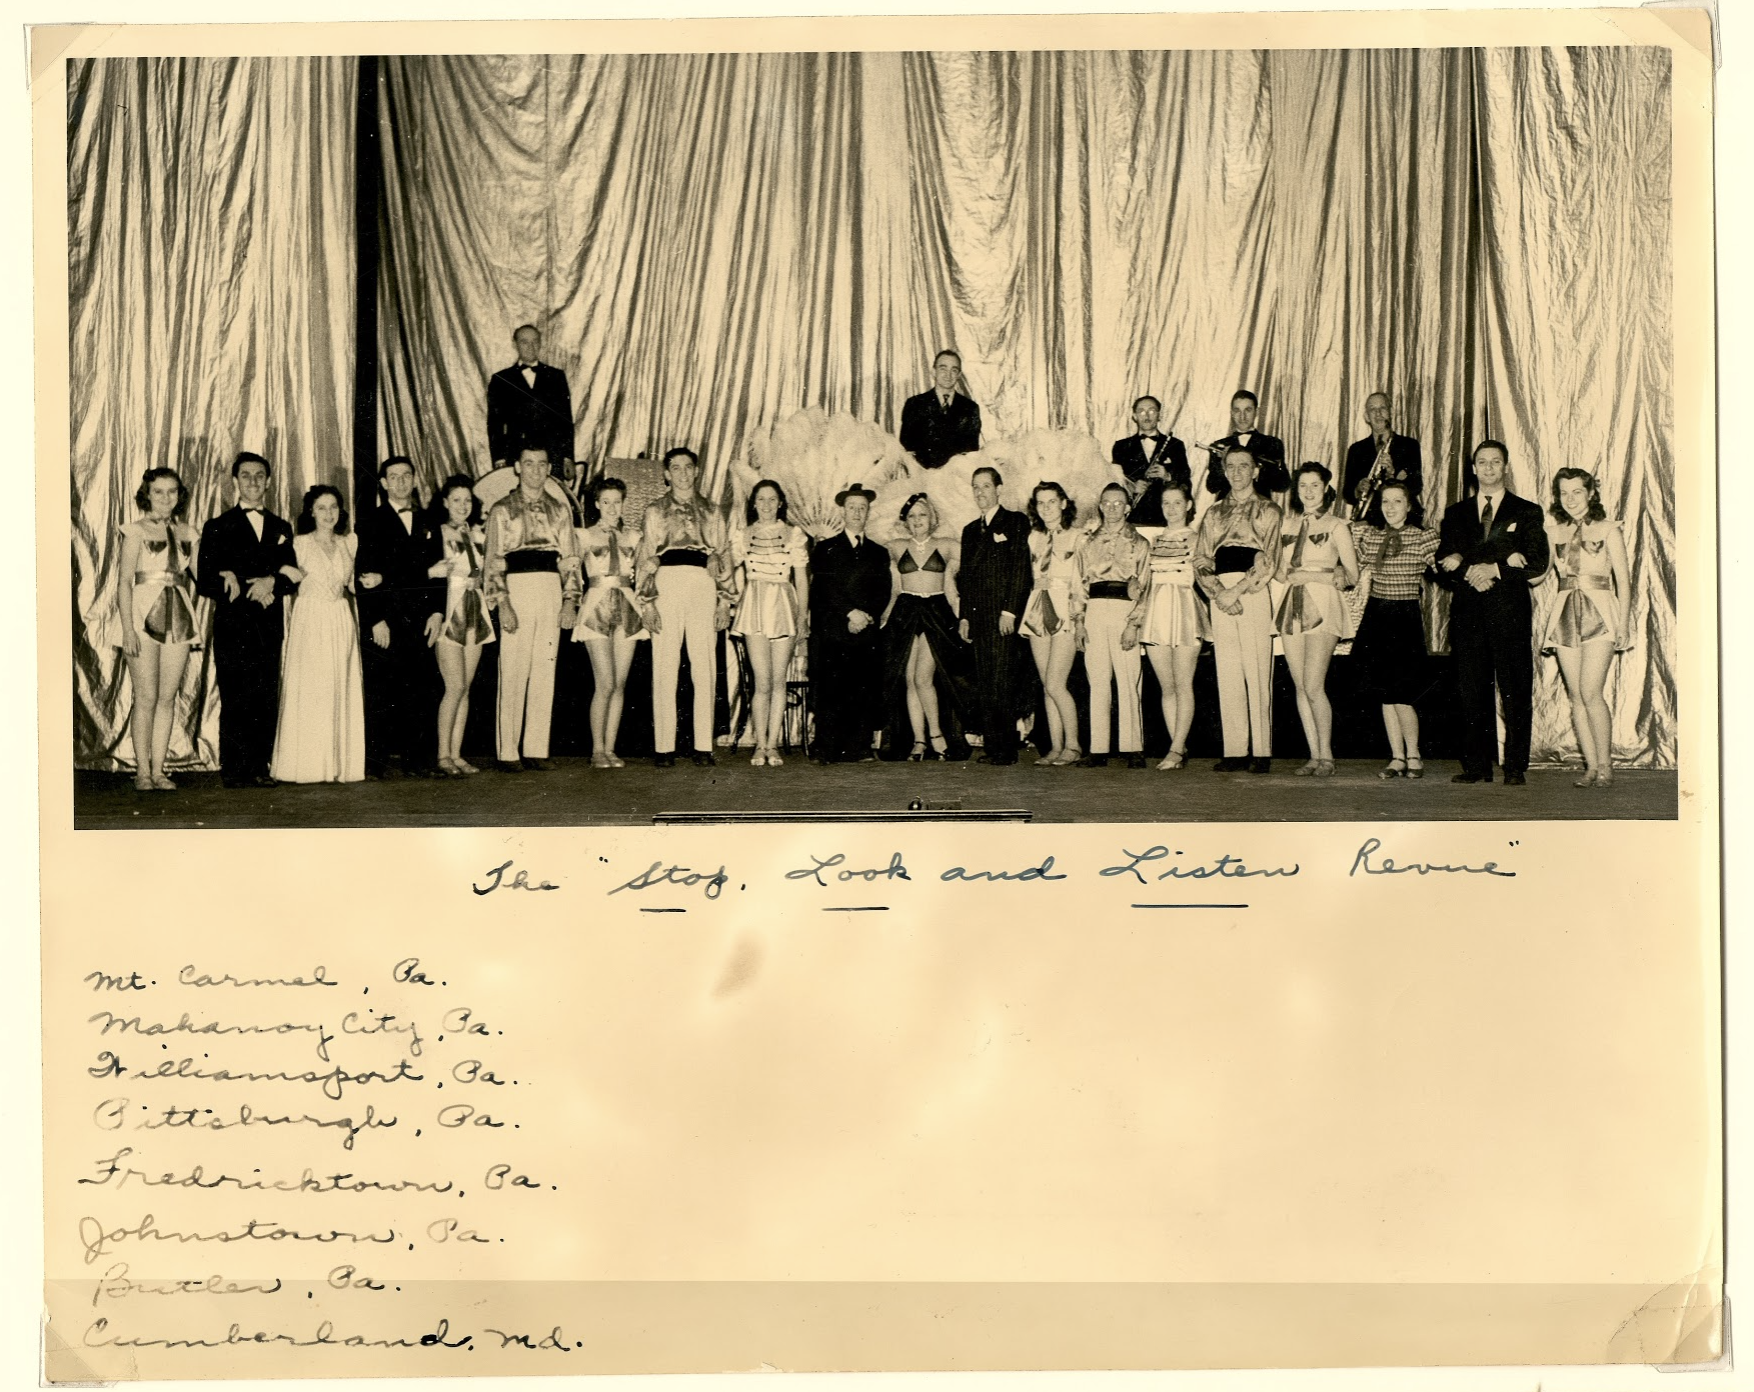 The "Stop, Look and Listen Revue"
Mt. Carmel, Pa.
Mahanoy City, Pa.
Williamsport, Pa.
Pittsburgh, Pa.
Fredricktown, Pa.
Johnstown, Pa.
Butler, Pa.
Cumberland, Md.